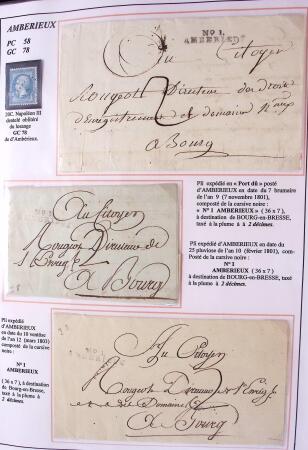 AMBERIEUX
PC 58
GC 78
20C. Napoléon III
dentelé oblitéré
du losange
GC 78
de d'Ambérieux.
No 1.
AMBERIEUX
Au Citoyen
Directeur des droits
d'Enregistrement et domaines
a Bourg
Pli expédié en « Port dû » posté
d'AMBERIEUX en date du 7 brumaire
de l'an 9 (7 novembre 1801),
composté de la cursive noire :
« N° 1 AMBERIEUX » (36 x 7)
à destination de BOURG-en-BRESSE, taxé
à la plume à 2 décimes.
Au Citoyen
Directeur de
a Bourg
Pli expédié d'AMBERIEUX en date du
25 pluviose de l'an 10 (février 1801), com-
Posté de la cursive noire :
« N° 1
AMBERIEUX (36 x 7)
à destination de BOURG-en-BRESSE, taxé
à la plume à 2 décimes.
Pli expédié
d'AMBERIEUX en date
du 10 ventôse
de l'an 12 (mars 1803)
composté de la cursive
noire :
N° 1
AMBERIEUX
(36 x 7), à destination
de Bourg-en-Bresse,
taxé à la plume à
2 décimes.
No 1
Au Citoyen
Directeur
des Domaines
a Bourg